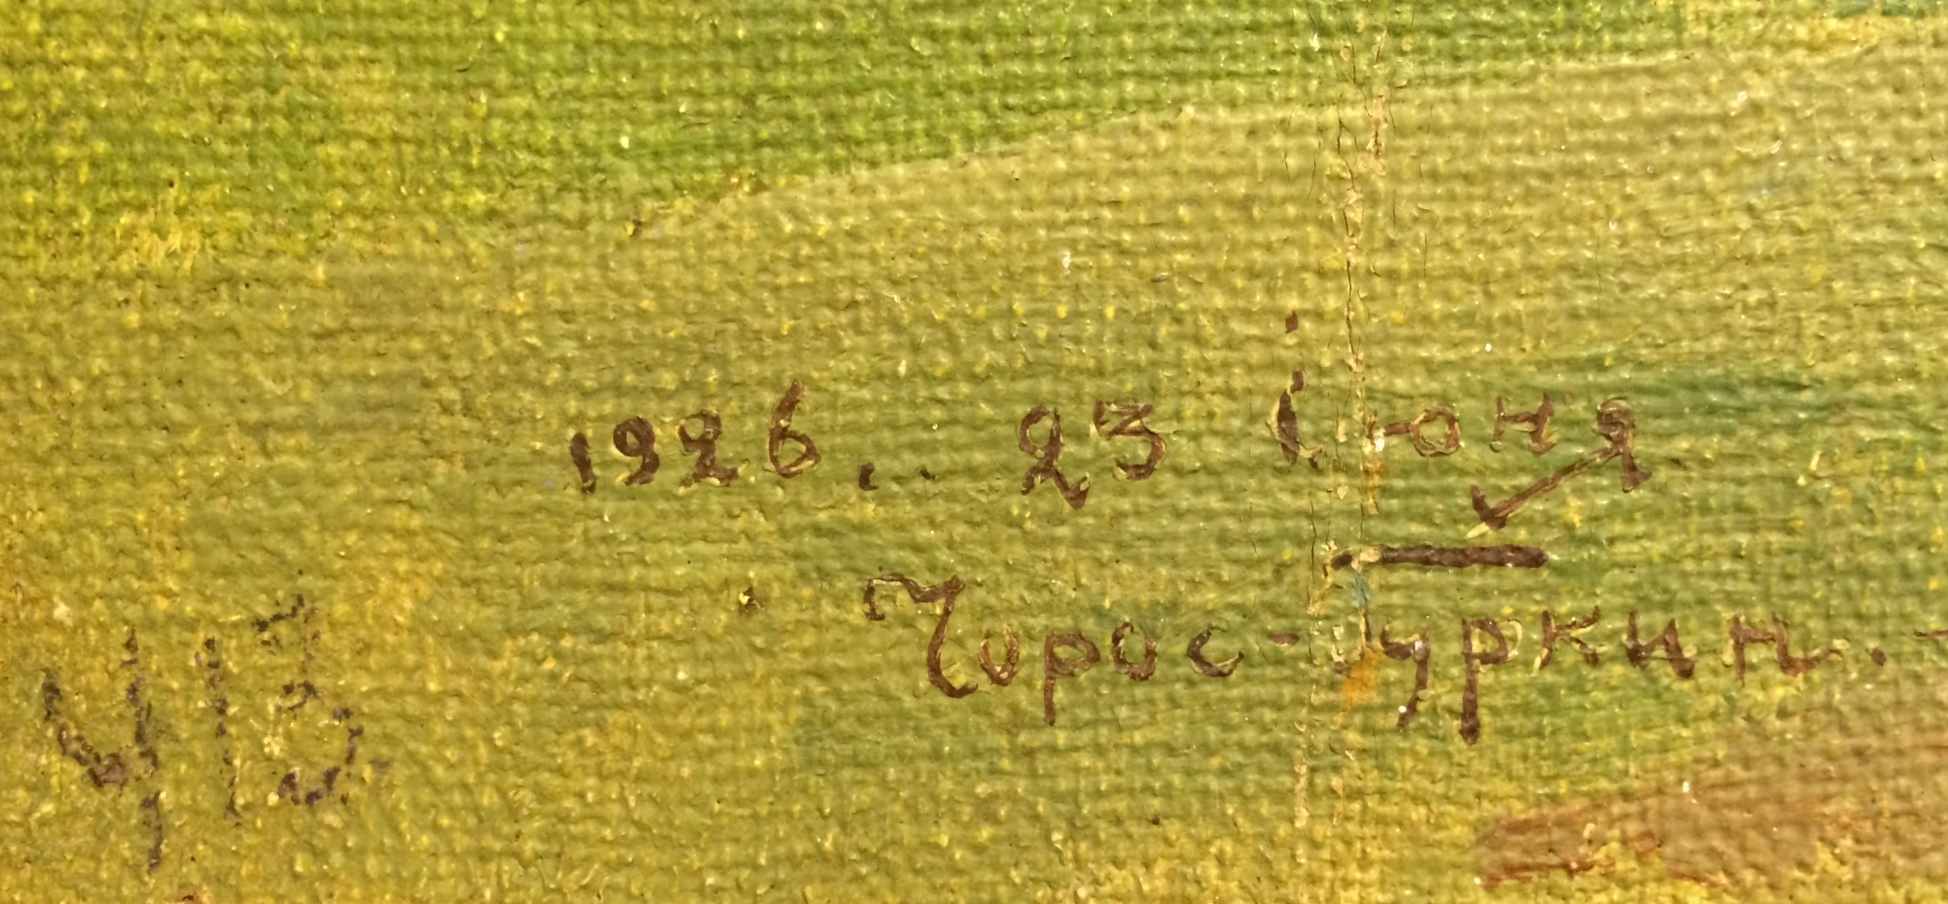 1926.. 23 iюня
Чорос-Гуркин.-
413